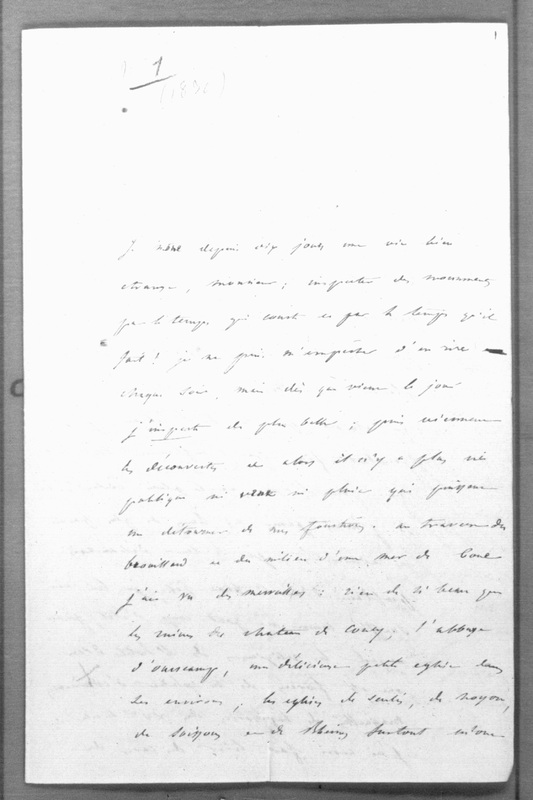 1
1
(1830)
Je mène depuis dix jours une vie bien
étrange, monsieur ; inspecter des monuments
par le temps qui court et par le temps qu'il
fait ! je ne puis m'empêcher d'en rire
chaque soir, mais dès que vient le jour
j'inspecte de plus belle ; puis viennent
les découvertes et alors il n'y a plus ni
politique ni vent ni pluie qui puissent
me détourner de mes fonctions. au travers des
brouillards et au milieu d'une mer de boue
j'ai vu des merveilles : rien de si beau que
les ruines du chateau de Coucy ; l'abbaye
d'Ourscamp, une délicieuse petite église dans
les environs ; les églises de Senlis, de Noyon,
de Soissons et de Rheims surtout m'ont